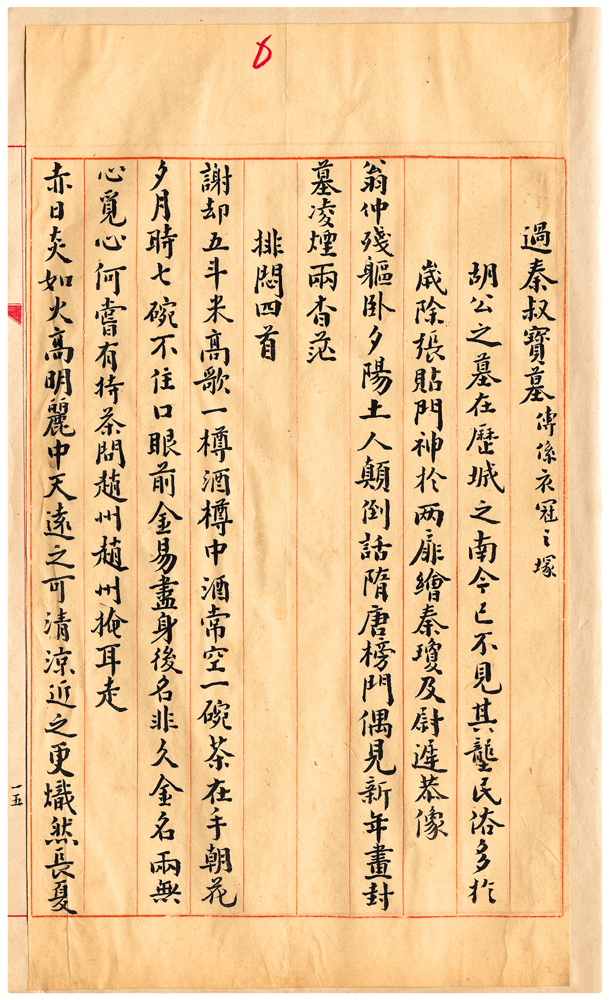 6
過秦叔寶墓 傳係衣冠之塚
胡公之墓在歷城之南今已不見其壟民俗多於
歲除張貼門神於两扉繪秦瓊及尉遲恭像
翁仲殘軀卧夕陽土人顛倒話隋唐榜門偶見新年畫封
墓凌煙兩杳茫
排悶四首
謝却五斗米高歌一樽酒樽中酒常空一碗茶在手朝花
夕月時七碗不住口眼前金易盡身後名非久金名兩無
心覓心何嘗有持茶問趙州趙州掩耳走
赤日炎如火高明麗中天遠之可清涼近之更熾然長夏
一五